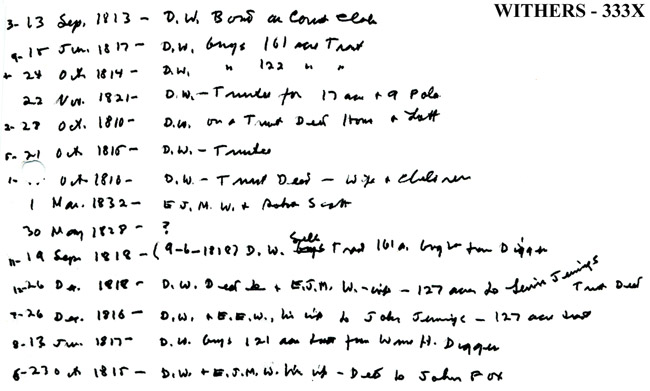 WITHERS - 333X
3- 13 Sep. 1813 - D.W. Bond as Court Clek
9- 15 Jun. 1817 - D.W. buys 161 acre Tract
4- 24 Oct 1814 - D.W. " 122 " "
22 Nov. 1821 - D.W. - Trustee for 17 acre + 9 Pole
2- 28 Oct. 1810 - D.W. on a Trust Deed Hous + Lott
5- 21 Oct 1815 - D.W. - Trustee
1- .. Oct 1810 - D.W. - Trust Deed - Wife + Children
1 Mar. 1832 - E.J.M.W. + Scott
30 May 1828 - ?
11- 19 Sep. 1818 - (9-6-1818?) D.W. Sells Tract 161 a. from Digges
12- 26 De. 1818 - D.W. Deed + E.J.M. W. - wife - 127 acre to Jennings Trust Deed
7- 26 Dec. 1816 - D.W. + E.E.W., his wife to John Jennings - 127 acre
8- 13 Jun. 1817 - D.W. buys 121 acre from Wm H. Digges
6- 23 Oct 1815 - D.W. + E.J.M.W. his wife - Deed to John Fox